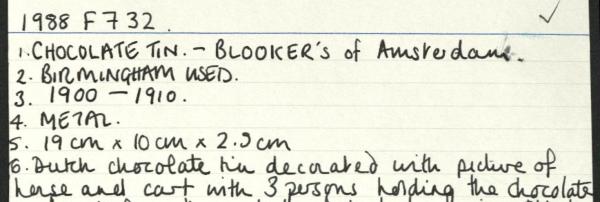 1988 F732.
1. CHOCOLATE TIN. - BLOOKER's of Amsterdam.
2. BIRMINGHAM USED.
3. 1900 - 1910.
4. METAL.
5. 19cm x 10cm x 2.9cm
6. Dutch chocolate tin decorated with picture of
horse and cart with 3 persons holding the chocolate